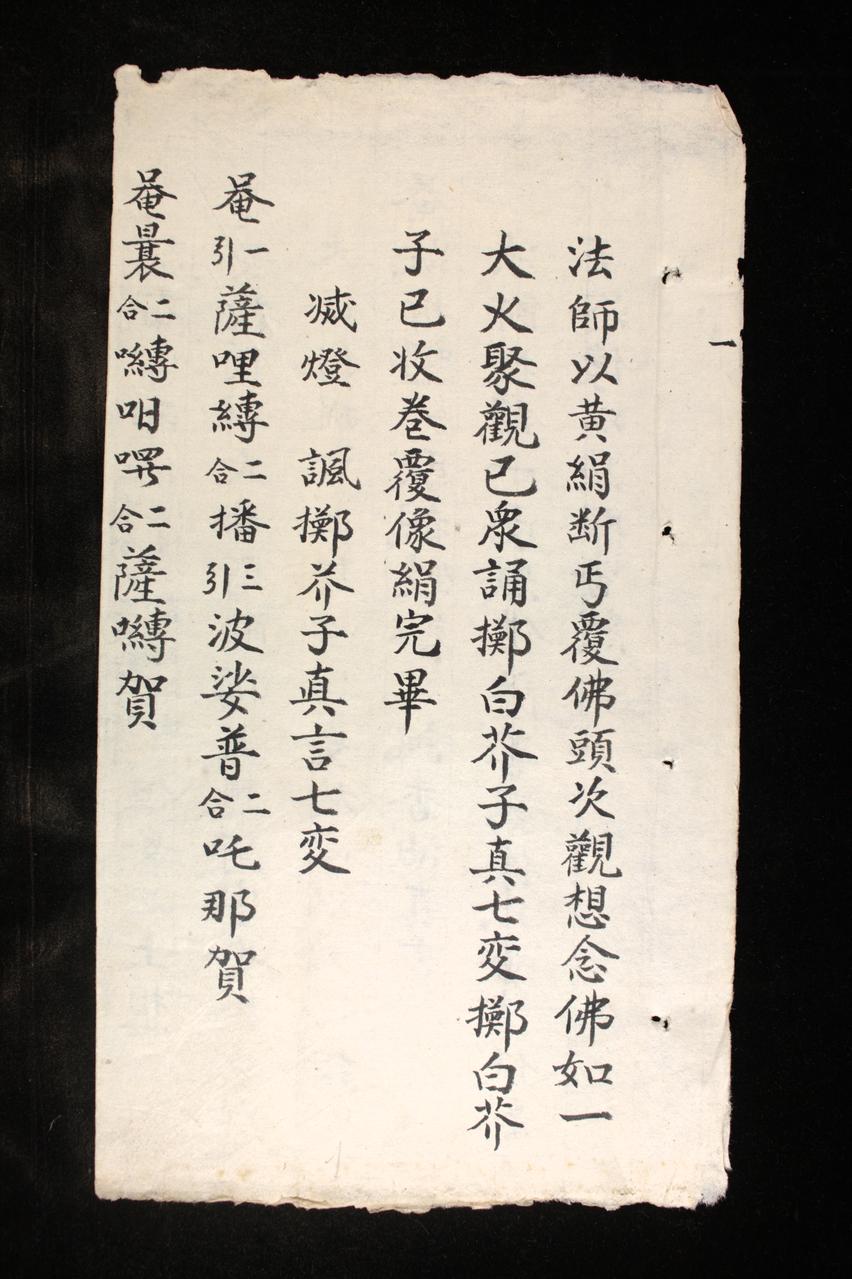 一
法師以黄絹断丐覆佛頭次觀想念佛如一
大火聚觀已衆誦擲白芥子真七変擲白芥
子已收巻覆像絹完畢
滅燈 諷擲芥子真言七変
菴引一薩哩縛合二播引三波娑普合二吒那賀
菴曩合二嚩呬㗚合二薩嚩賀